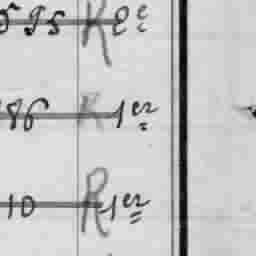 595 R 2e
86 R 1er
10 R 1er